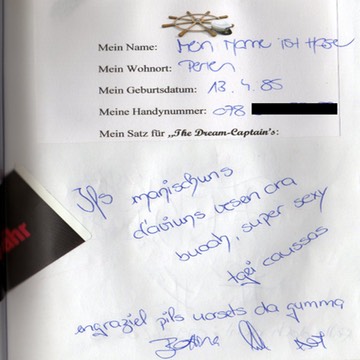 Mein Name: Mein Name ist Hase
Mein Wohnort: Perien
Mein Geburtsdatum: 13.4.85
Meine Handynummer: 078
Mein Satz für „The Dream-Captain's:
Ils manischuns
claviuns vesen ora
buaah, super sexy
tgei caussas
engraziel pils uorsets da gumma